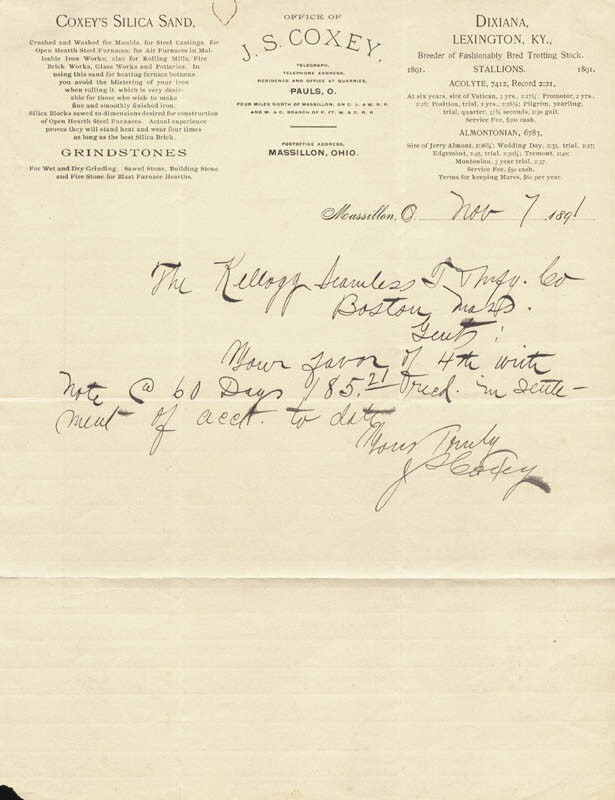 COXEY'S SILICA SAND,
Crushed and Washed for Moulds, for Steel Castings, for
Open Hearth Steel Furnaces; for Air Furnaces in Mal-
leable Iron Works; also for Rolling Mills, Fire
Brick Works, Glass Works and Potteries. In
using this sand for heating furnace bottoms
you avoid the blistering of your iron
when rolling it, which is very desir-
able for those who wish to make
fine and smoothly finished iron.
Silica Blocks sawed to dimensions desired for construction
of Open Hearth Steel Furnaces. Actual experience
proves they will stand heat and wear four times
as long as the best Silica Brick.
GRINDSTONES
For Wet and Dry Grinding. Sawed Stone, Building Stone
and Fire Stone for Blast Furnace Hearths.
OFFICE OF
J. S. COXEY,
TELEGRAPH,
TELEPHONE ADDRESS,
RESIDENCE AND OFFICE AT QUARRIES,
PAULS, O.
FOUR MILES NORTH OF MASSILLON, ON C. L. & W. R. R.
AND M. & C. BRANCH OF P. FT. W. & C. R. R.
POSTOFFICE ADDRESS,
MASSILLON, OHIO.
DIXIANA,
LEXINGTON, KY.,
Breeder of Fashionably Bred Trotting Stock.
1891. STALLIONS. 1891.
ACOLYTE, 7412, Record 2:21,
At six years, sire of Vatican, 3 yrs., 2:27¼; Promotor, 2 yrs.,
2:28; Position, trial, 2 yrs., 2:28½; Pilgrim, yearling,
trial, quarter, 37½ seconds, 2:30 gait.
Service Fee, $300 cash.
ALMONTONIAN, 6783,
Sire of Jerry Almont, 2:26¼; Wedding Day, 2:35, trial, 2:27;
Edgemont, 2:45, trial, 2:30¾; Tremont, 2:40;
Montonian, 3 year trial, 2:37.
Service Fee, $50 cash.
Terms for keeping Mares, $60 per year.
Massillon, O. Nov 7 1891
The Kellogg Seamless T. Mfg. Co
Boston Mass.
Gents:
Your favor of 4th with
Note @ 60 Days 185.21 recd. in settle-
ment of acct. to date
Yours Truly
J S Coxey